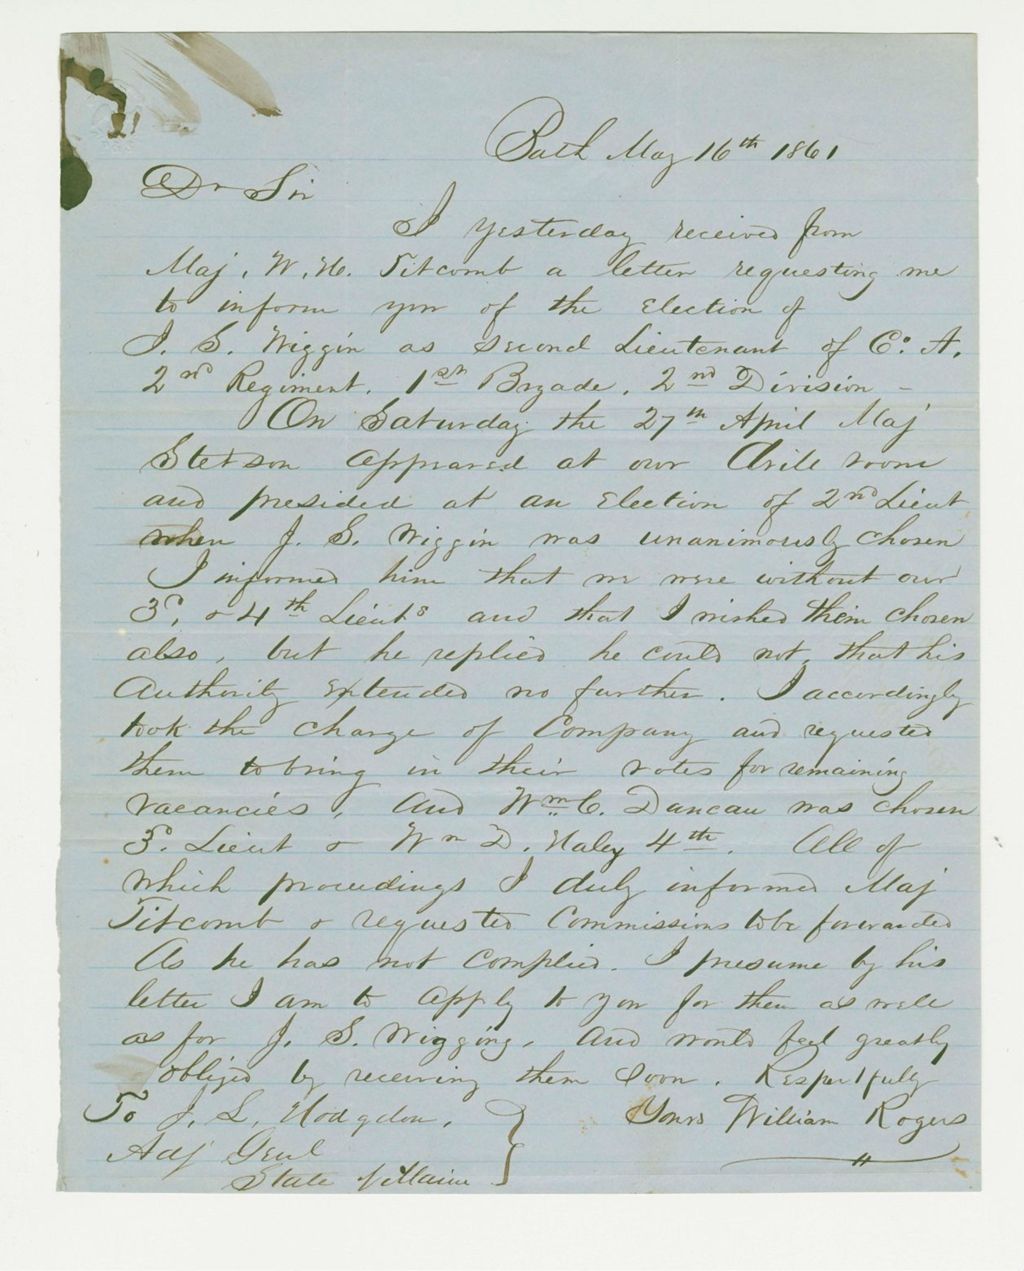 Bath May 16th 1861
Dr Sir
I yesterday received from
Maj. W. H. Titcomb a letter requesting me
to inform you of the Election of
J. S. Wiggin as second Lieutenant of Co. A.
2nd Regiment. 1st Brgade. 2nd Division -
On Saturday the 27th April Maj
Stetson appeared at our Drill room
and presided at an Election of 2nd Lieut
when J. S. Wiggin was unanimously chosen
I informed him that we were without our
3d. & 4th Lieuts and that I wished them chosen
also, but he replied he could not, that his
Authority Extended no further. I accordingly
took the charge of Company and requested
them to bring in their votes for remaining
vacancies, And Wm C. Duncan was chosen
3d. Lieut & Wm D. Haley 4th. All of
which proceedings I duly informed Maj
Titcomb & requested Commissions to be forwarded
As he has not Complied. I presume by his
letter I am to apply to you for them as well
as for J. S. Wiggins. And would feel greatly
obliged by receiving them soon. Respectfully
To J. L. Hodgdon. } Yours William Rogers
Adj Genl
State of Maine